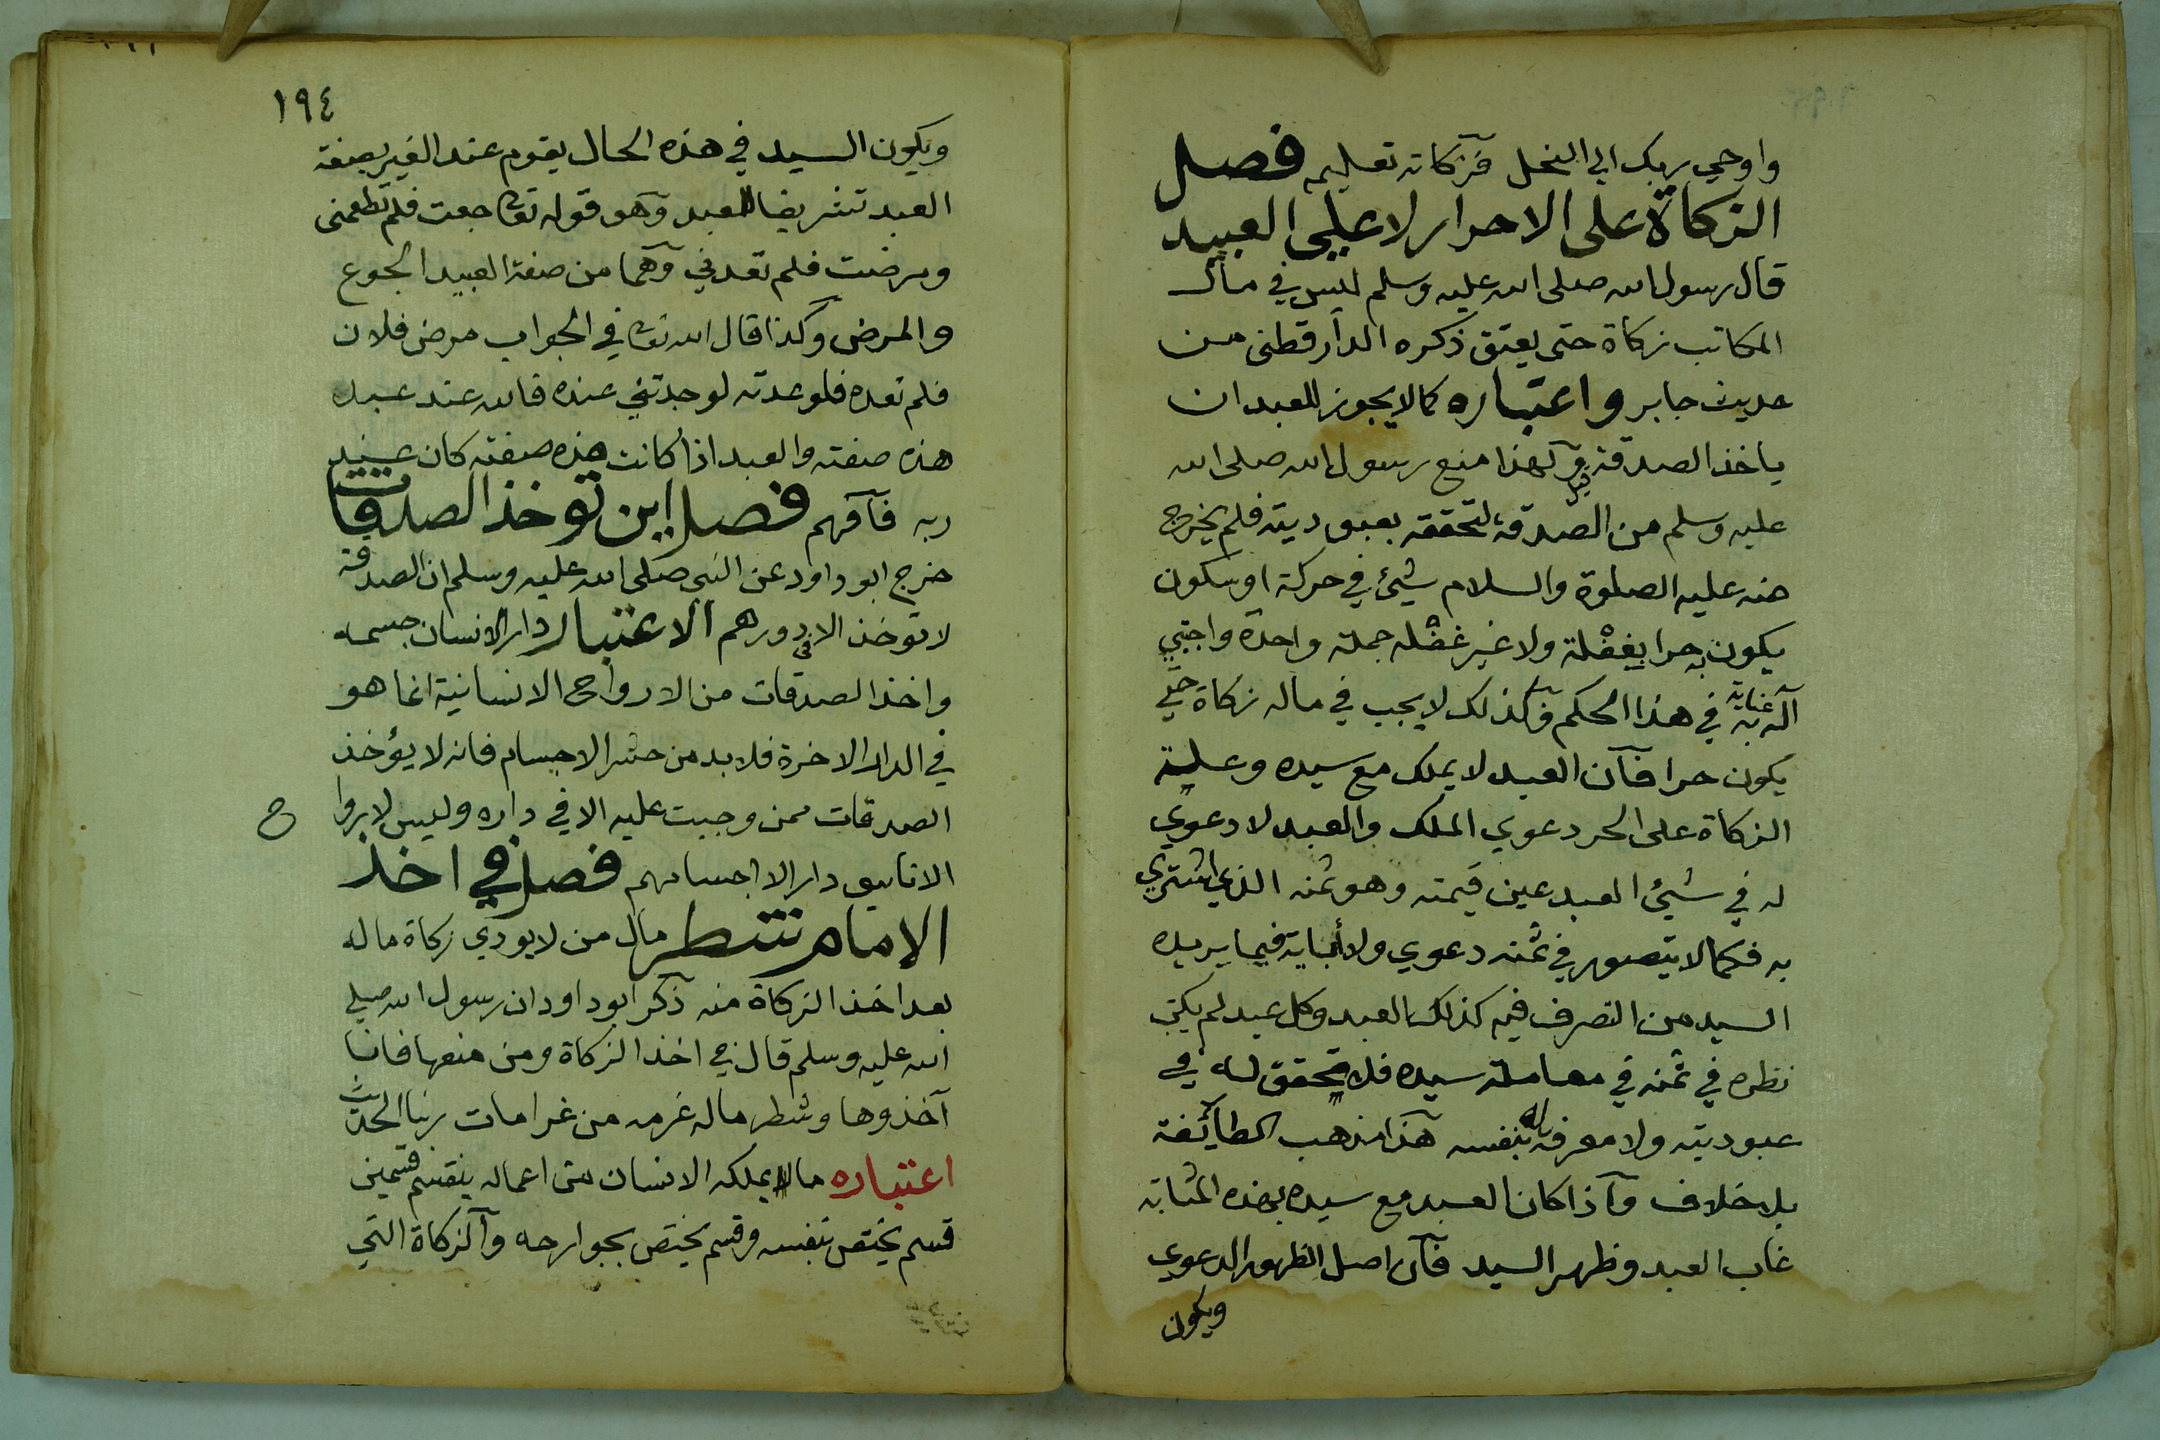 واوحي ربك الي النحل فزكاته تعليم فصل
الزكاة على الاحرار لا على العبيد
قال رسول الله صلى الله عليه وسلم ليس في مال
المكاتب زكاة حتى يعتق ذكره الدارقطنى من
حديث جابر واعتباره كما لا يجوز للعبد ان
ياخذ الصدقة ولهذا منع رسول الله صلى الله
عليه وسلم من الصدقة لتحققه بعبوديته فلم يخرج
منه عليه الصلوة والسلام شيئ في حركة او سكون
يكون به حرا بغفلة ولا غير غفلة جملة واحدة واجتبي
آله في هذا الحكم وكذلك لا يجب في ماله زكاة حتي
يكون حرا فان العبد لا يملك مع سيده وعلة
الزكاة على الحر دعوي الملك والعبد لا دعوي
له في شيئ العبد عين قيمته وهو ثمنه الذي اشتري
به فكما لا يتصور في ثمنه دعوي ولا أباية فيما يريده
السيد من التصرف فيه كذلك العبد وكل عبد لم يكن
نظره في ثمنه في معاملة سيده فلا تحقق له في
عبوديته ولا معرفة له بنفسه هذا مذهب الطائفة
بلا خلاف واذا كان العبد مع سيده بهذه المثابة
غاب العبد وظهر السيد فان اصل الظهور الدعوي
ويكون
١٩٤
ويكون السيد في هذه الحال يقوم عند الغير بصفة
العبد تشريفا للعبد وهو قوله تعالى جعت فلم تطعمنى
ومرضت فلم تعدني وهما من صفة العبيد الجوع
والمرض وكذا قال الله تعالى في الجواب مرض فلان
فلم تعده فلو عدته لوجدتني عنده فالله عند عبد
هذه صفته والعبد اذا كانت هذه صفته كان عند
ربه فافهم فصل اين توخذ الصدقات
خرج ابو داود عن النبى صلى الله عليه وسلم ان الصدقة
لا توخذ الا في دورهم الاعتبار دار الانسان جسمه
واخذ الصدقات من الارواح الانسانية انما هو
في الدار الاخرة فلا بد من حشر الاجسام فانه لا يؤخذ
الصدقات ممن وجبت عليه الا في داره وليس لاروا
ح
الاناسي دار الا اجسامهم فصل في اخذ
الامام شطر مال من لا يودي زكاة ماله
بعد اخذ الزكاة منه ذكر ابو داود ان رسول الله صلى
الله عليه وسلم قال في اخذ الزكاة ومن منعها فانا
آخذوها وشطر ماله غرمه من غرامات ربنا الحديث
اعتباره ما يملكه الانسان من اعماله ينقسم قسمين
قسم يختص بنفسه وقسم يختص بجوارحه والزكاة التي